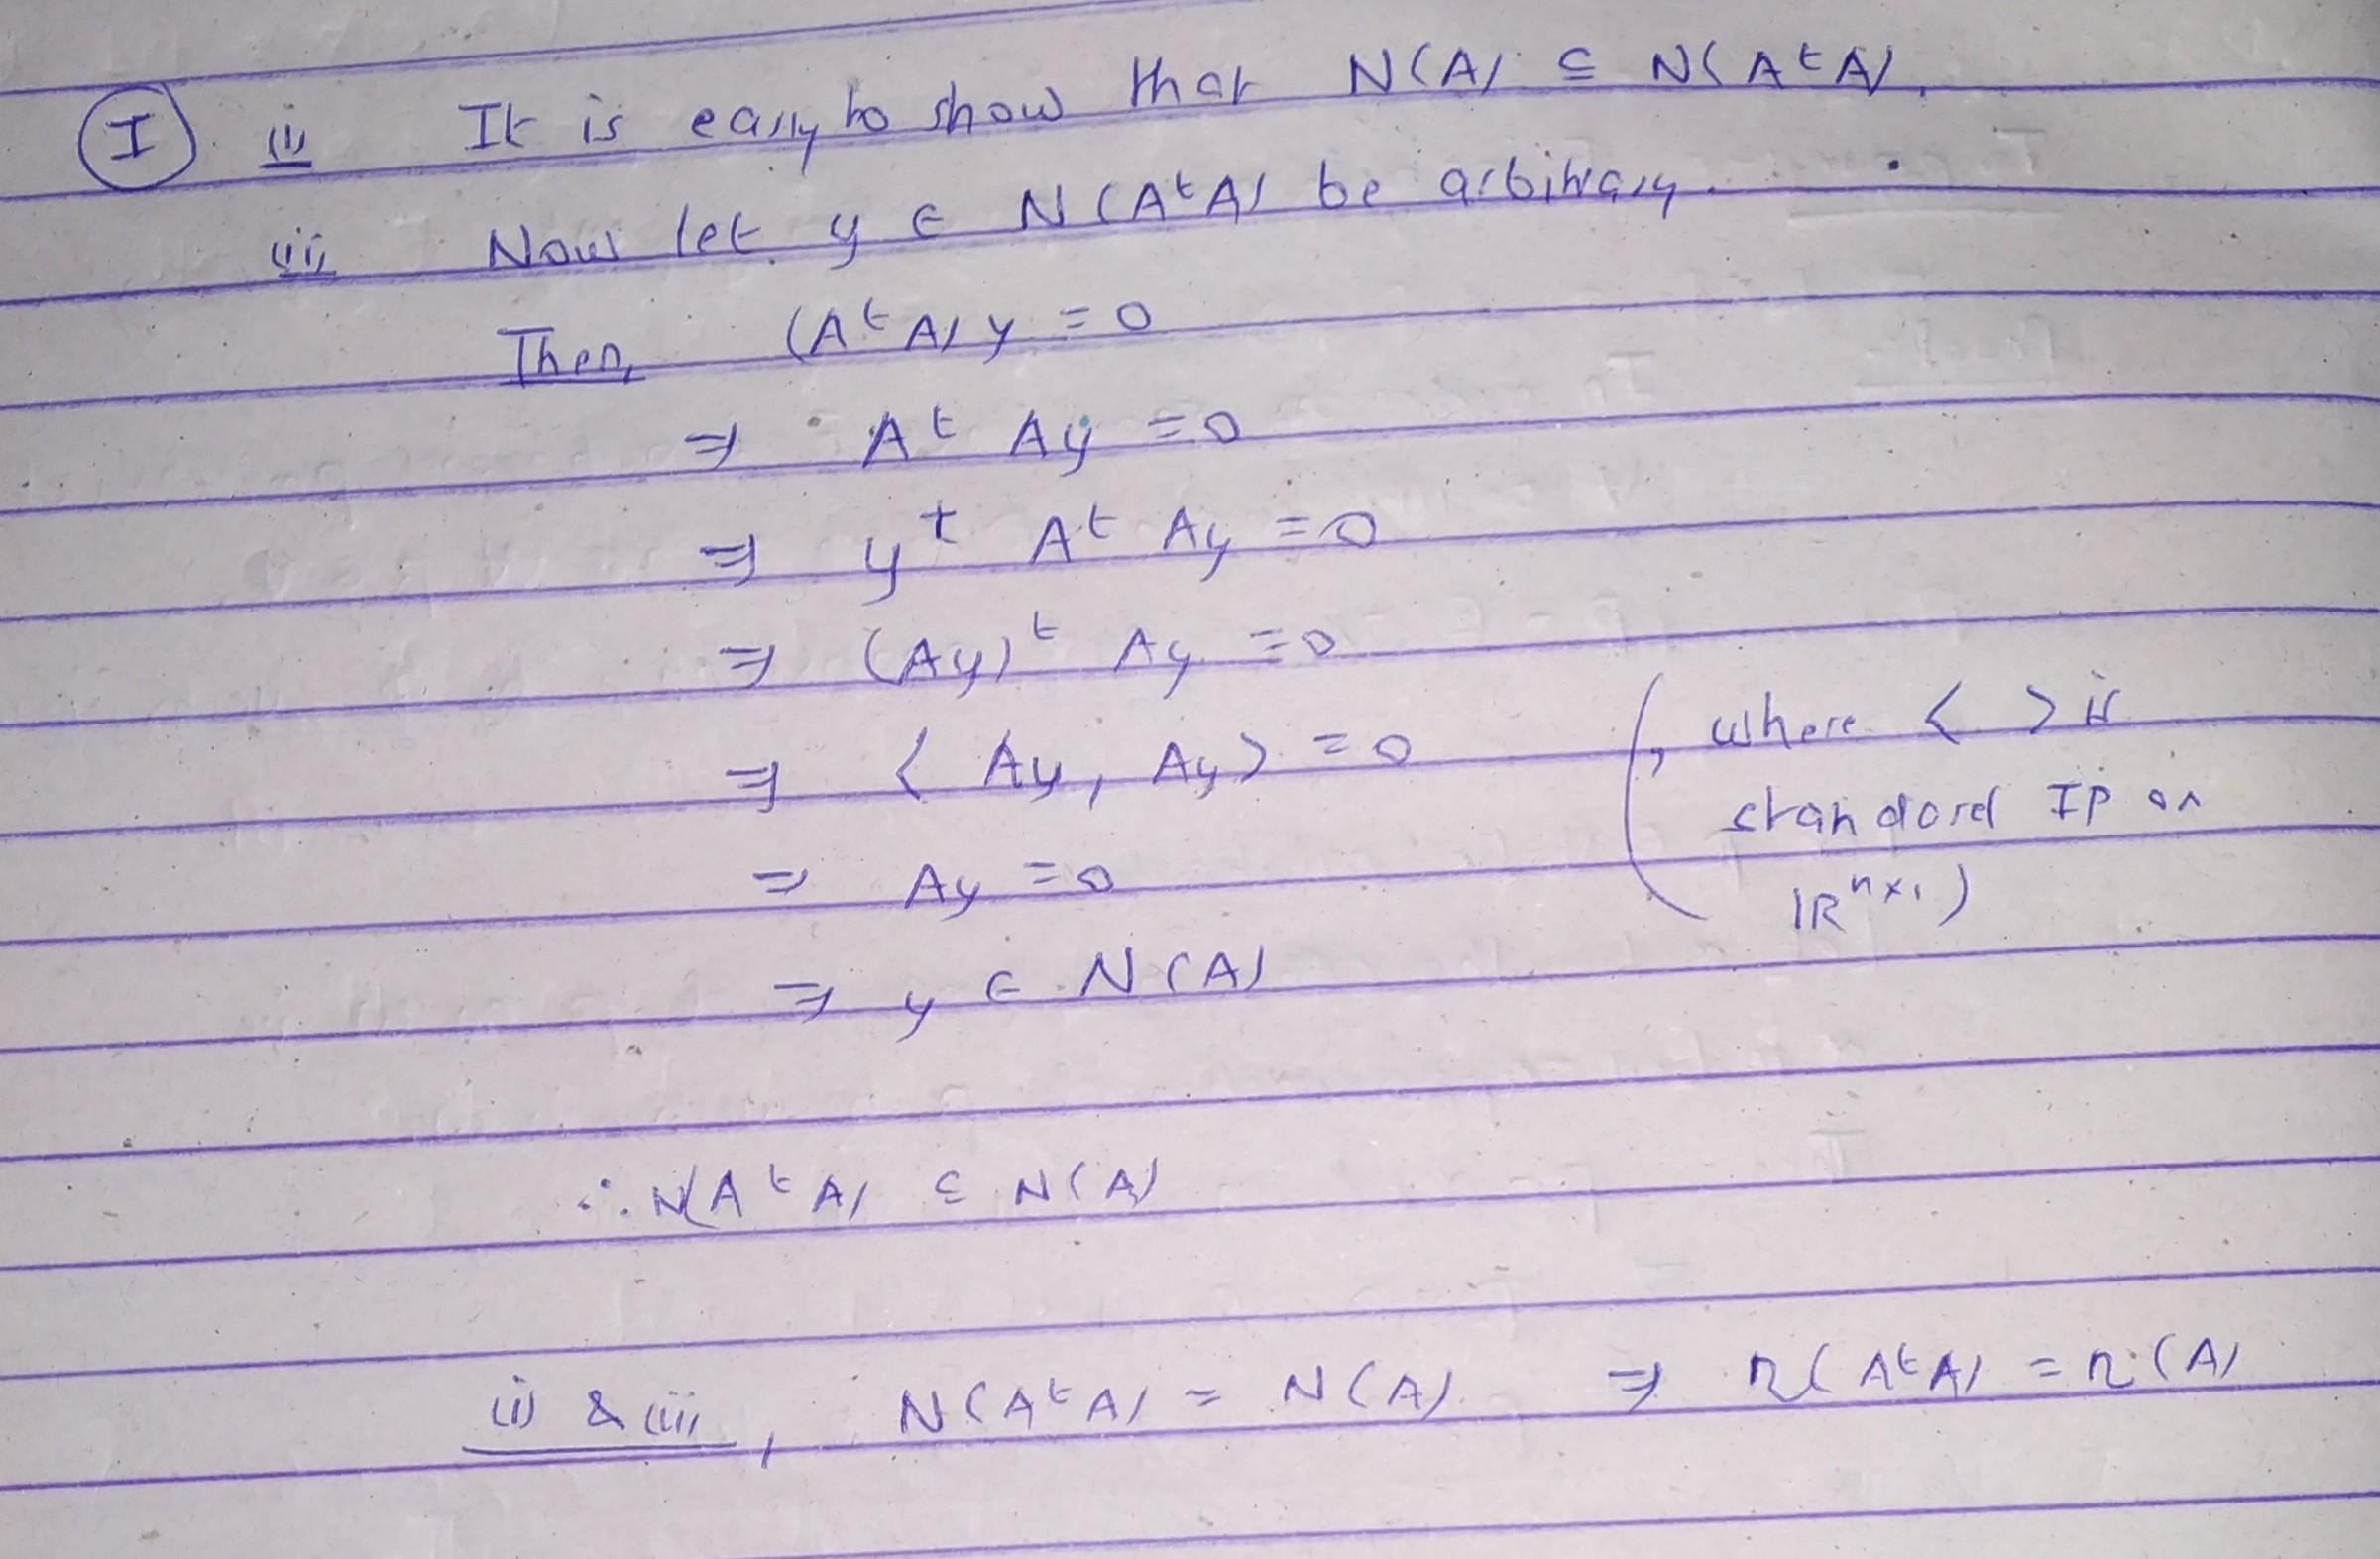 I (i) It is easy to show that N(A) ⊆ N(AᵗA).
(ii) Now let y ∈ N(AᵗA) be arbitrary.
Then, (AᵗA)y = 0
⇒ Aᵗ Ay = 0
⇒ yᵗ Aᵗ Ay = 0
⇒ (Ay)ᵗ Ay = 0
⇒ ⟨Ay, Ay⟩ = 0 (, where ⟨ ⟩ is
standard IP on
⇒ Ay = 0
ℝⁿˣ¹)
⇒ y ∈ N(A)
∴ N(AᵗA) ⊆ N(A)
(i) & (ii), N(AᵗA) = N(A) ⇒ r(AᵗA) = r(A)